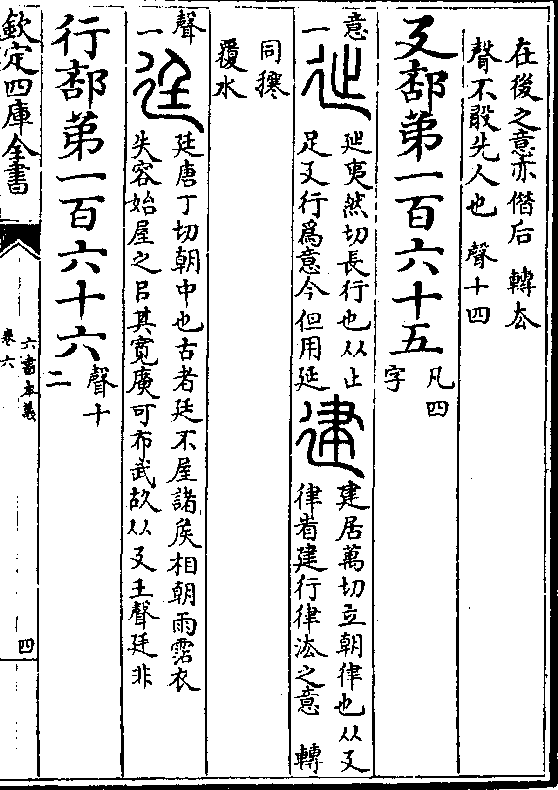 在後之意亦僭后　轉厺
聲不敢先人也　聲十四
廴部第一百六十五
凡四
字
意
一
㢟夷然切長行也从止
足廴行爲意今但用延
建居萬切立朝律也从廴
律省建行律法之意　轉
同𢷏
覆水
聲
一
廷唐丁切朝中也古者廷不屋諸侯相朝雨霑衣
失容始屋之㠯其寬廣可布武故从廴王聲廷非
行部第一百六十六
聲十
二
欽定四庫全書
六書本義
卷六
四